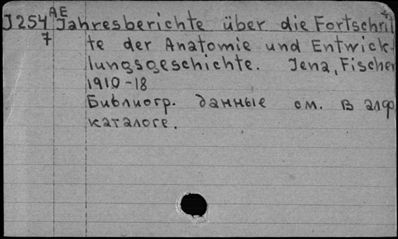 AE
J254 Jahresberichte über die Fortschri
7 te der Anatomie und Entwick-
lungsgeschichte. Jena, Fischer
1910-18
Библиогр. данные см. в алф
каталоге.